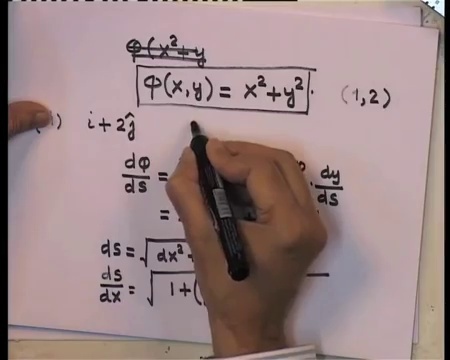 φ(x²+y
φ(x,y) = x²+y². (1,2)
i+2ĵ
dφ/ds = dy/ds
=
ds = √dx²
ds/dx = √1+(